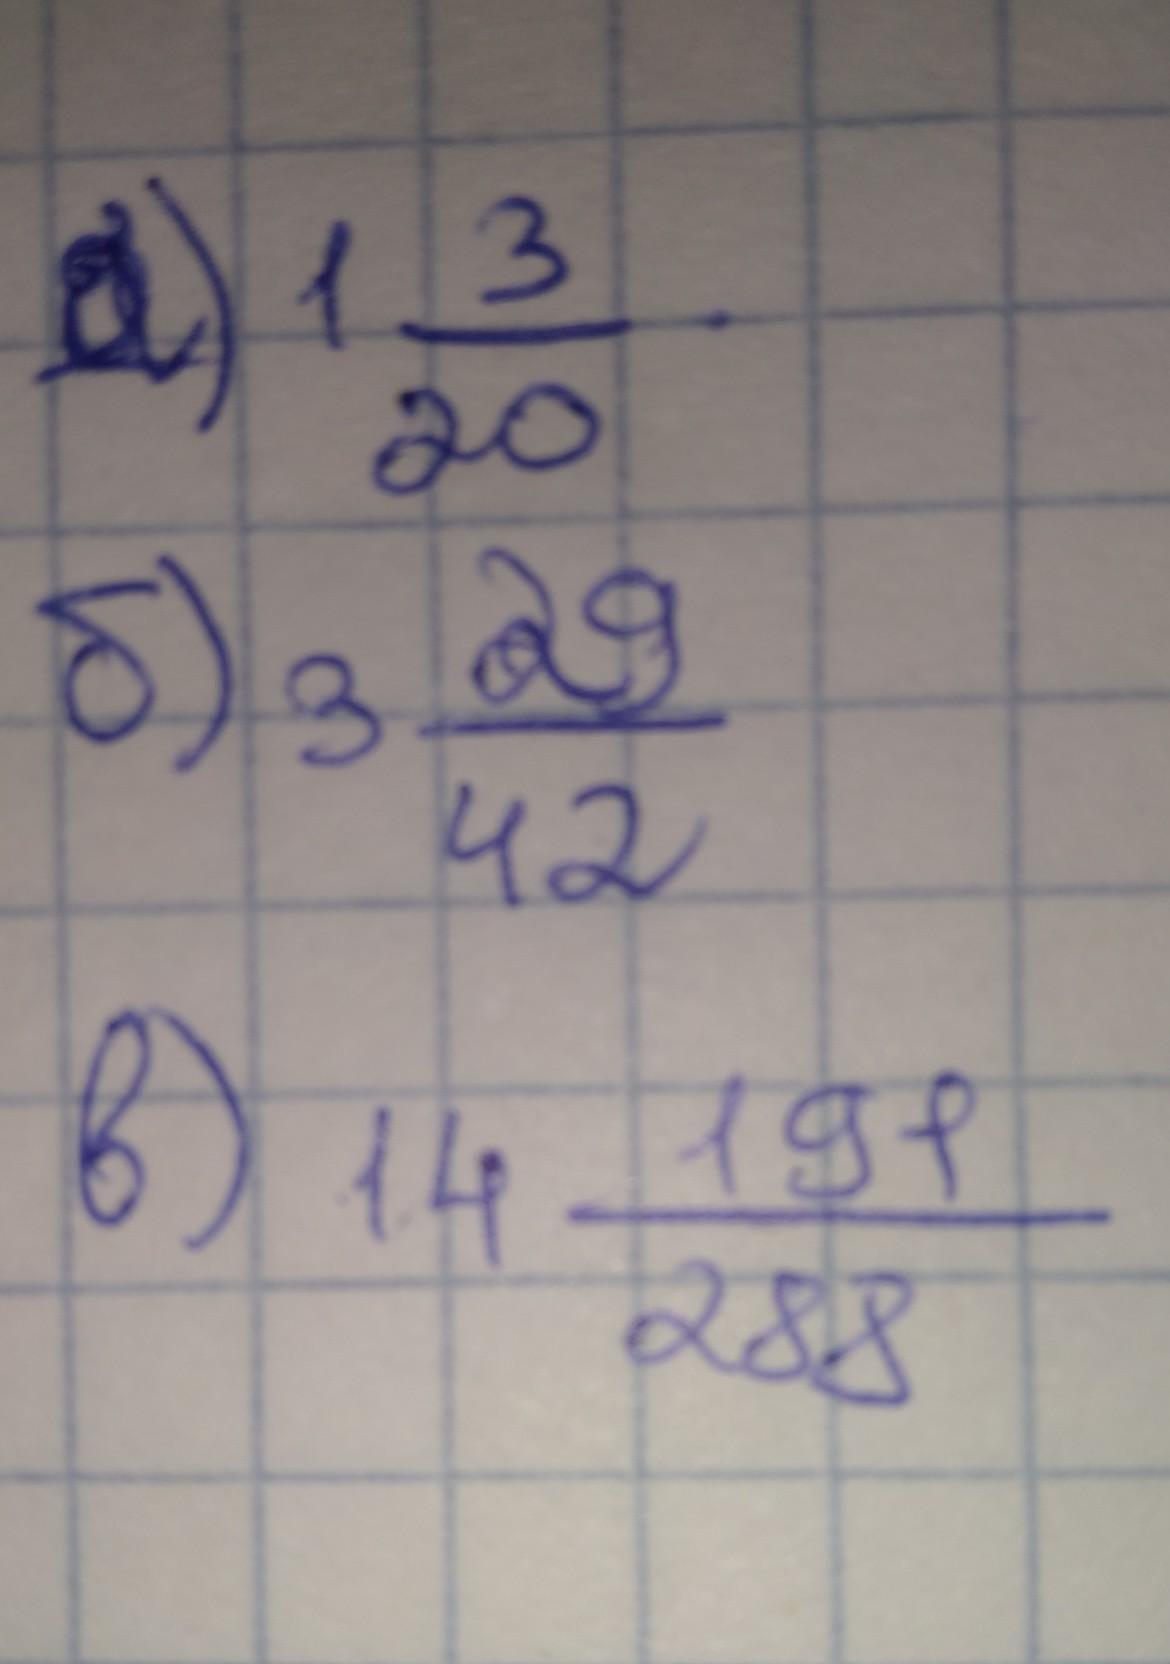 а) 1 3/20 .
б) 3 29/42
в) 14 191/288